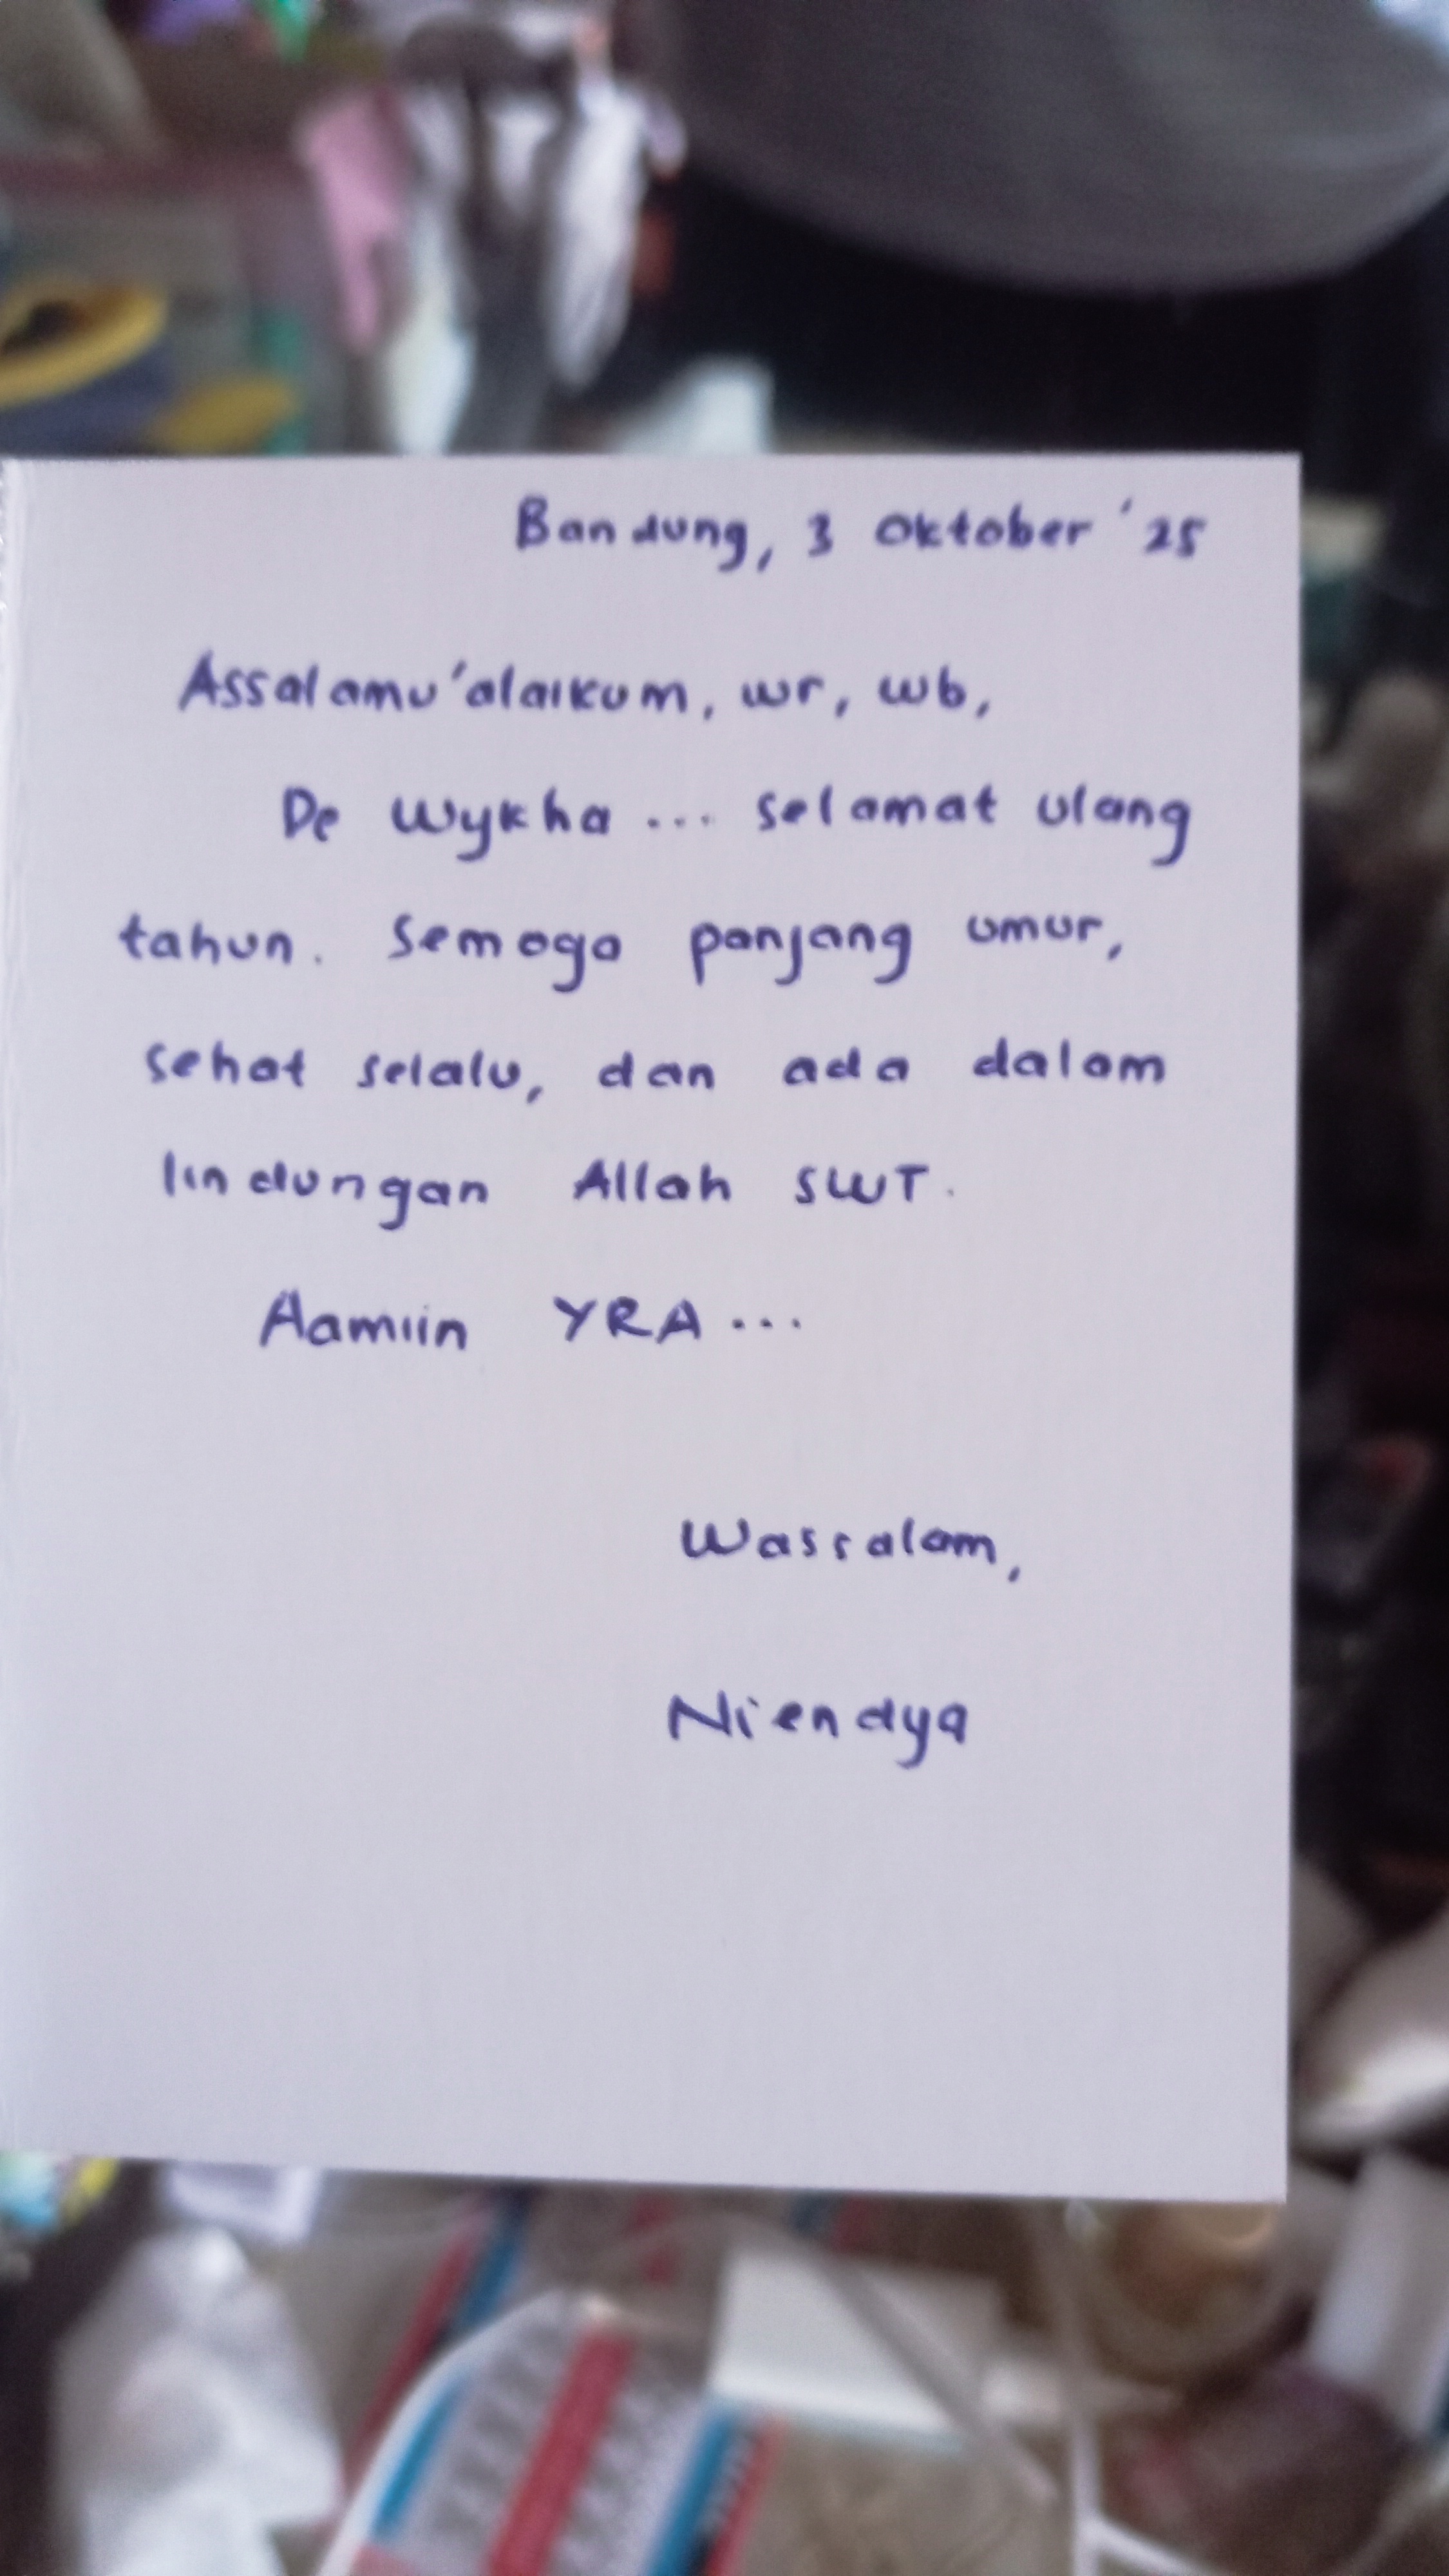 Bandung, 3 Oktober '25
Assalamu'alaikum, wr, wb,
De Wykha ... selamat ulang
tahun. Semoga panjang umur,
sehat selalu, dan ada dalam
lindungan Allah SWT.
Aamiin YRA ...
Wassalam,
Niendya